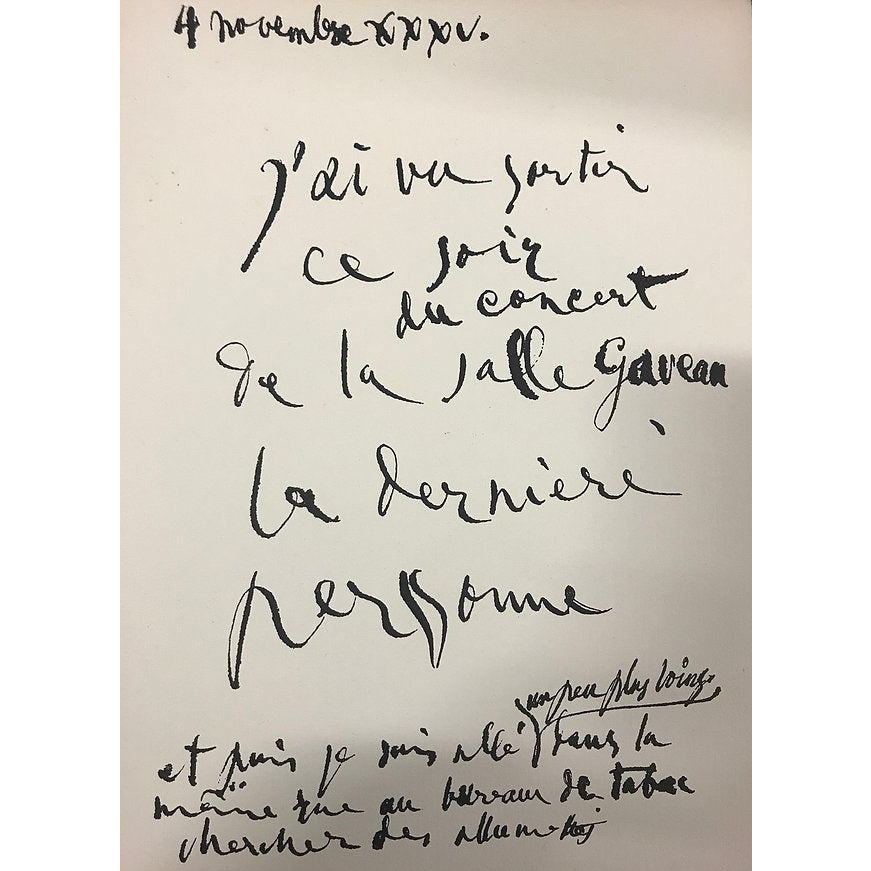 4 novembre XXXV.
j'ai vu sortir
ce soir
du concert
de la salle Gaveau
la dernière
personne
un peu plus loing.
et puis je suis allé dans la
même rue au bureau de tabac
chercher des allumettes